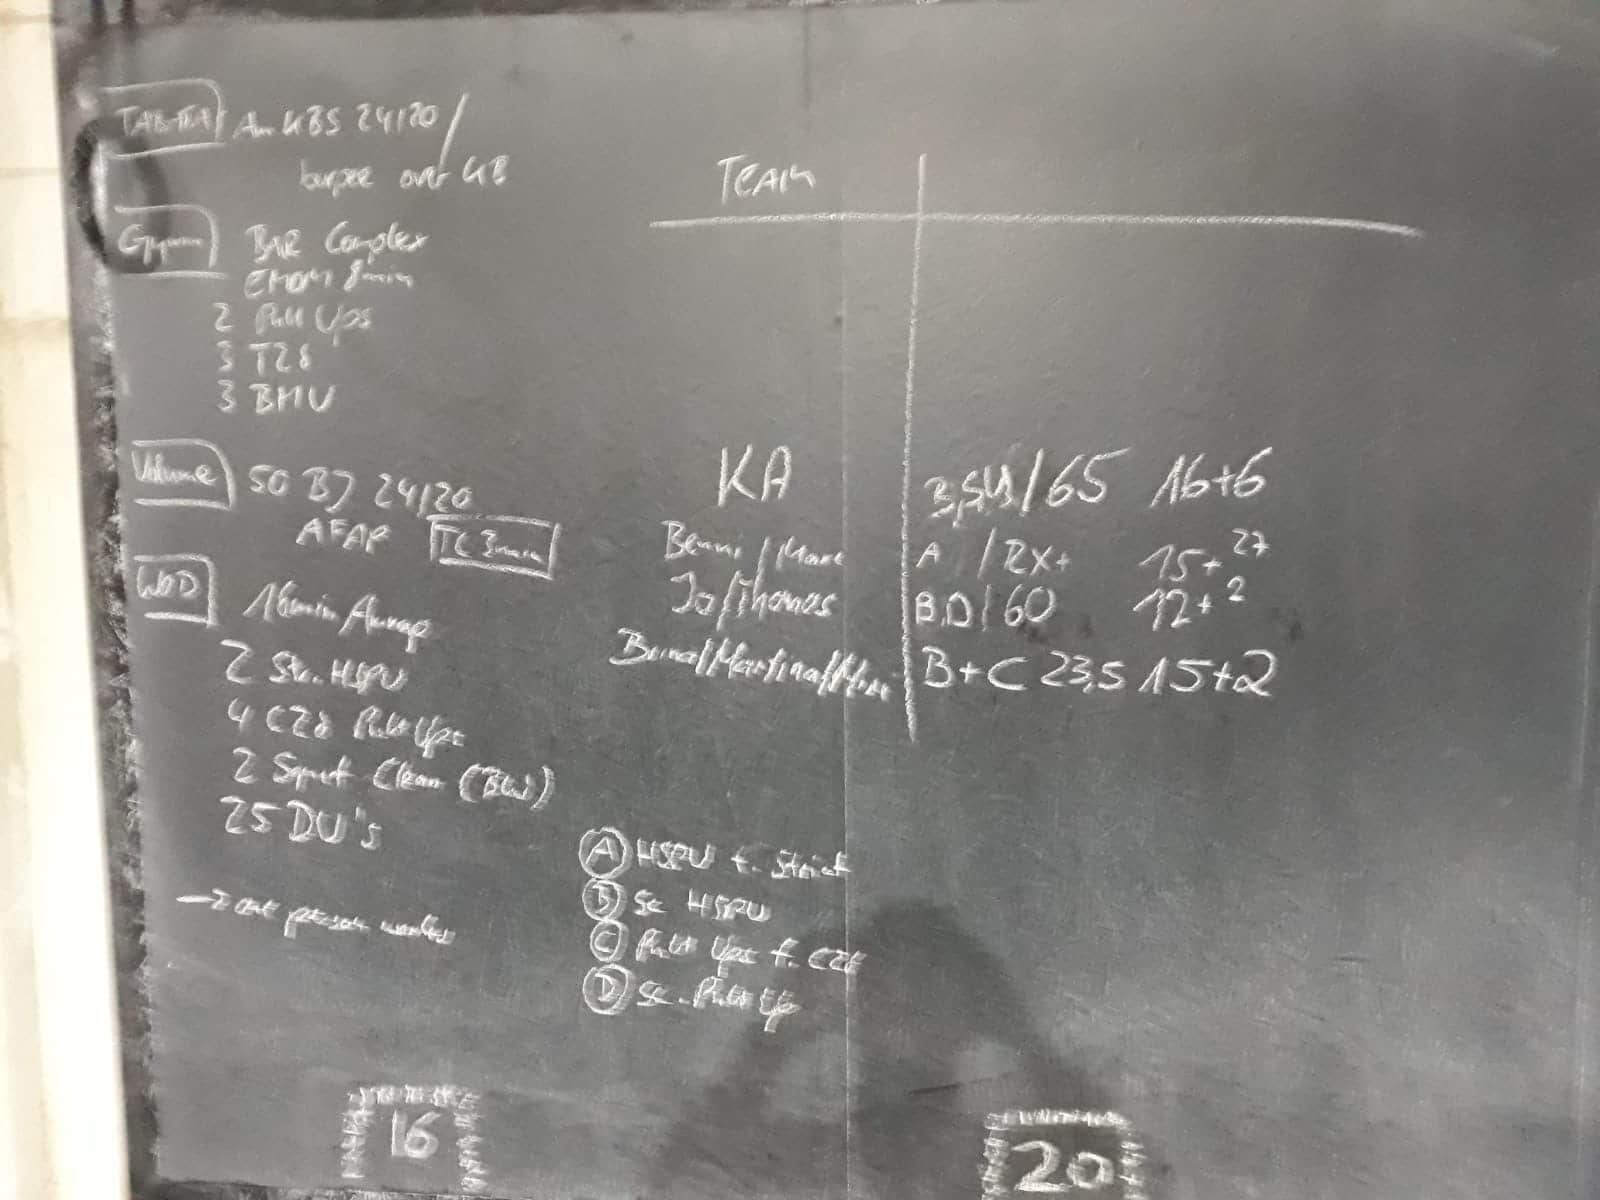 TABATA Am KBS 24/20 /
burpee over KB
Gym BAR Complex
EMOM 8min
2 Pull Ups
3 T2B
3 BMU
Volume 50 BJ 24/20
AFAP TC 3min
WOD 16min Amrap
2 Str. HSPU
4 C2B Pull Ups
2 Squat Clean (BW)
25 DU's
→ one person works
TEAM
KA /65 16+6
Benni / Marc A /RX+ 15+27
Jo/Thomas B,D/60 12+2
/Martina/ B+C 23,5 15+2
A HSPU f. Strict
B Sc HSPU
C Pull Ups f. C2B
D Sc. Pull Up
16
20